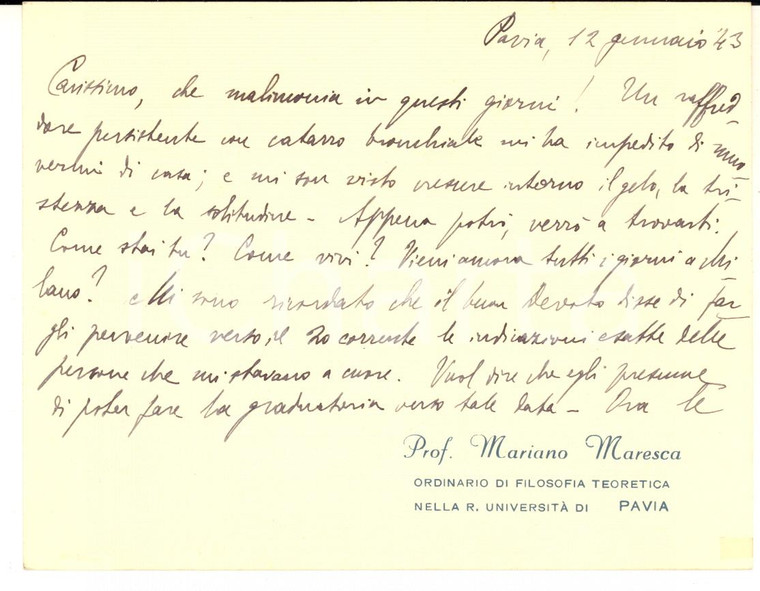 Pavia, 12 gennaio '43
Carissimo, che malinconia in questi giorni! Un raffred-
dore persistente con catarro bronchiale mi ha impedito di muo-
vermi di casa; e mi son visto crescere intorno il gelo, la tri-
stezza e la solitudine - Appena potrò, verrò a trovarti.
Come stai tu? Come vivi? Vieni ancora tutti i giorni a Mi-
lano? Mi sono ricordato che il buon Devoto disse di far-
gli pervenire verso il 20 corrente le indicazioni esatte delle
persone che mi stavano a cuore. Vuol dire che egli presume
di poter fare la graduatoria verso tale data - Ora te
Prof. Mariano Maresca
ORDINARIO DI FILOSOFIA TEORETICA
NELLA R. UNIVERSITÀ DI PAVIA